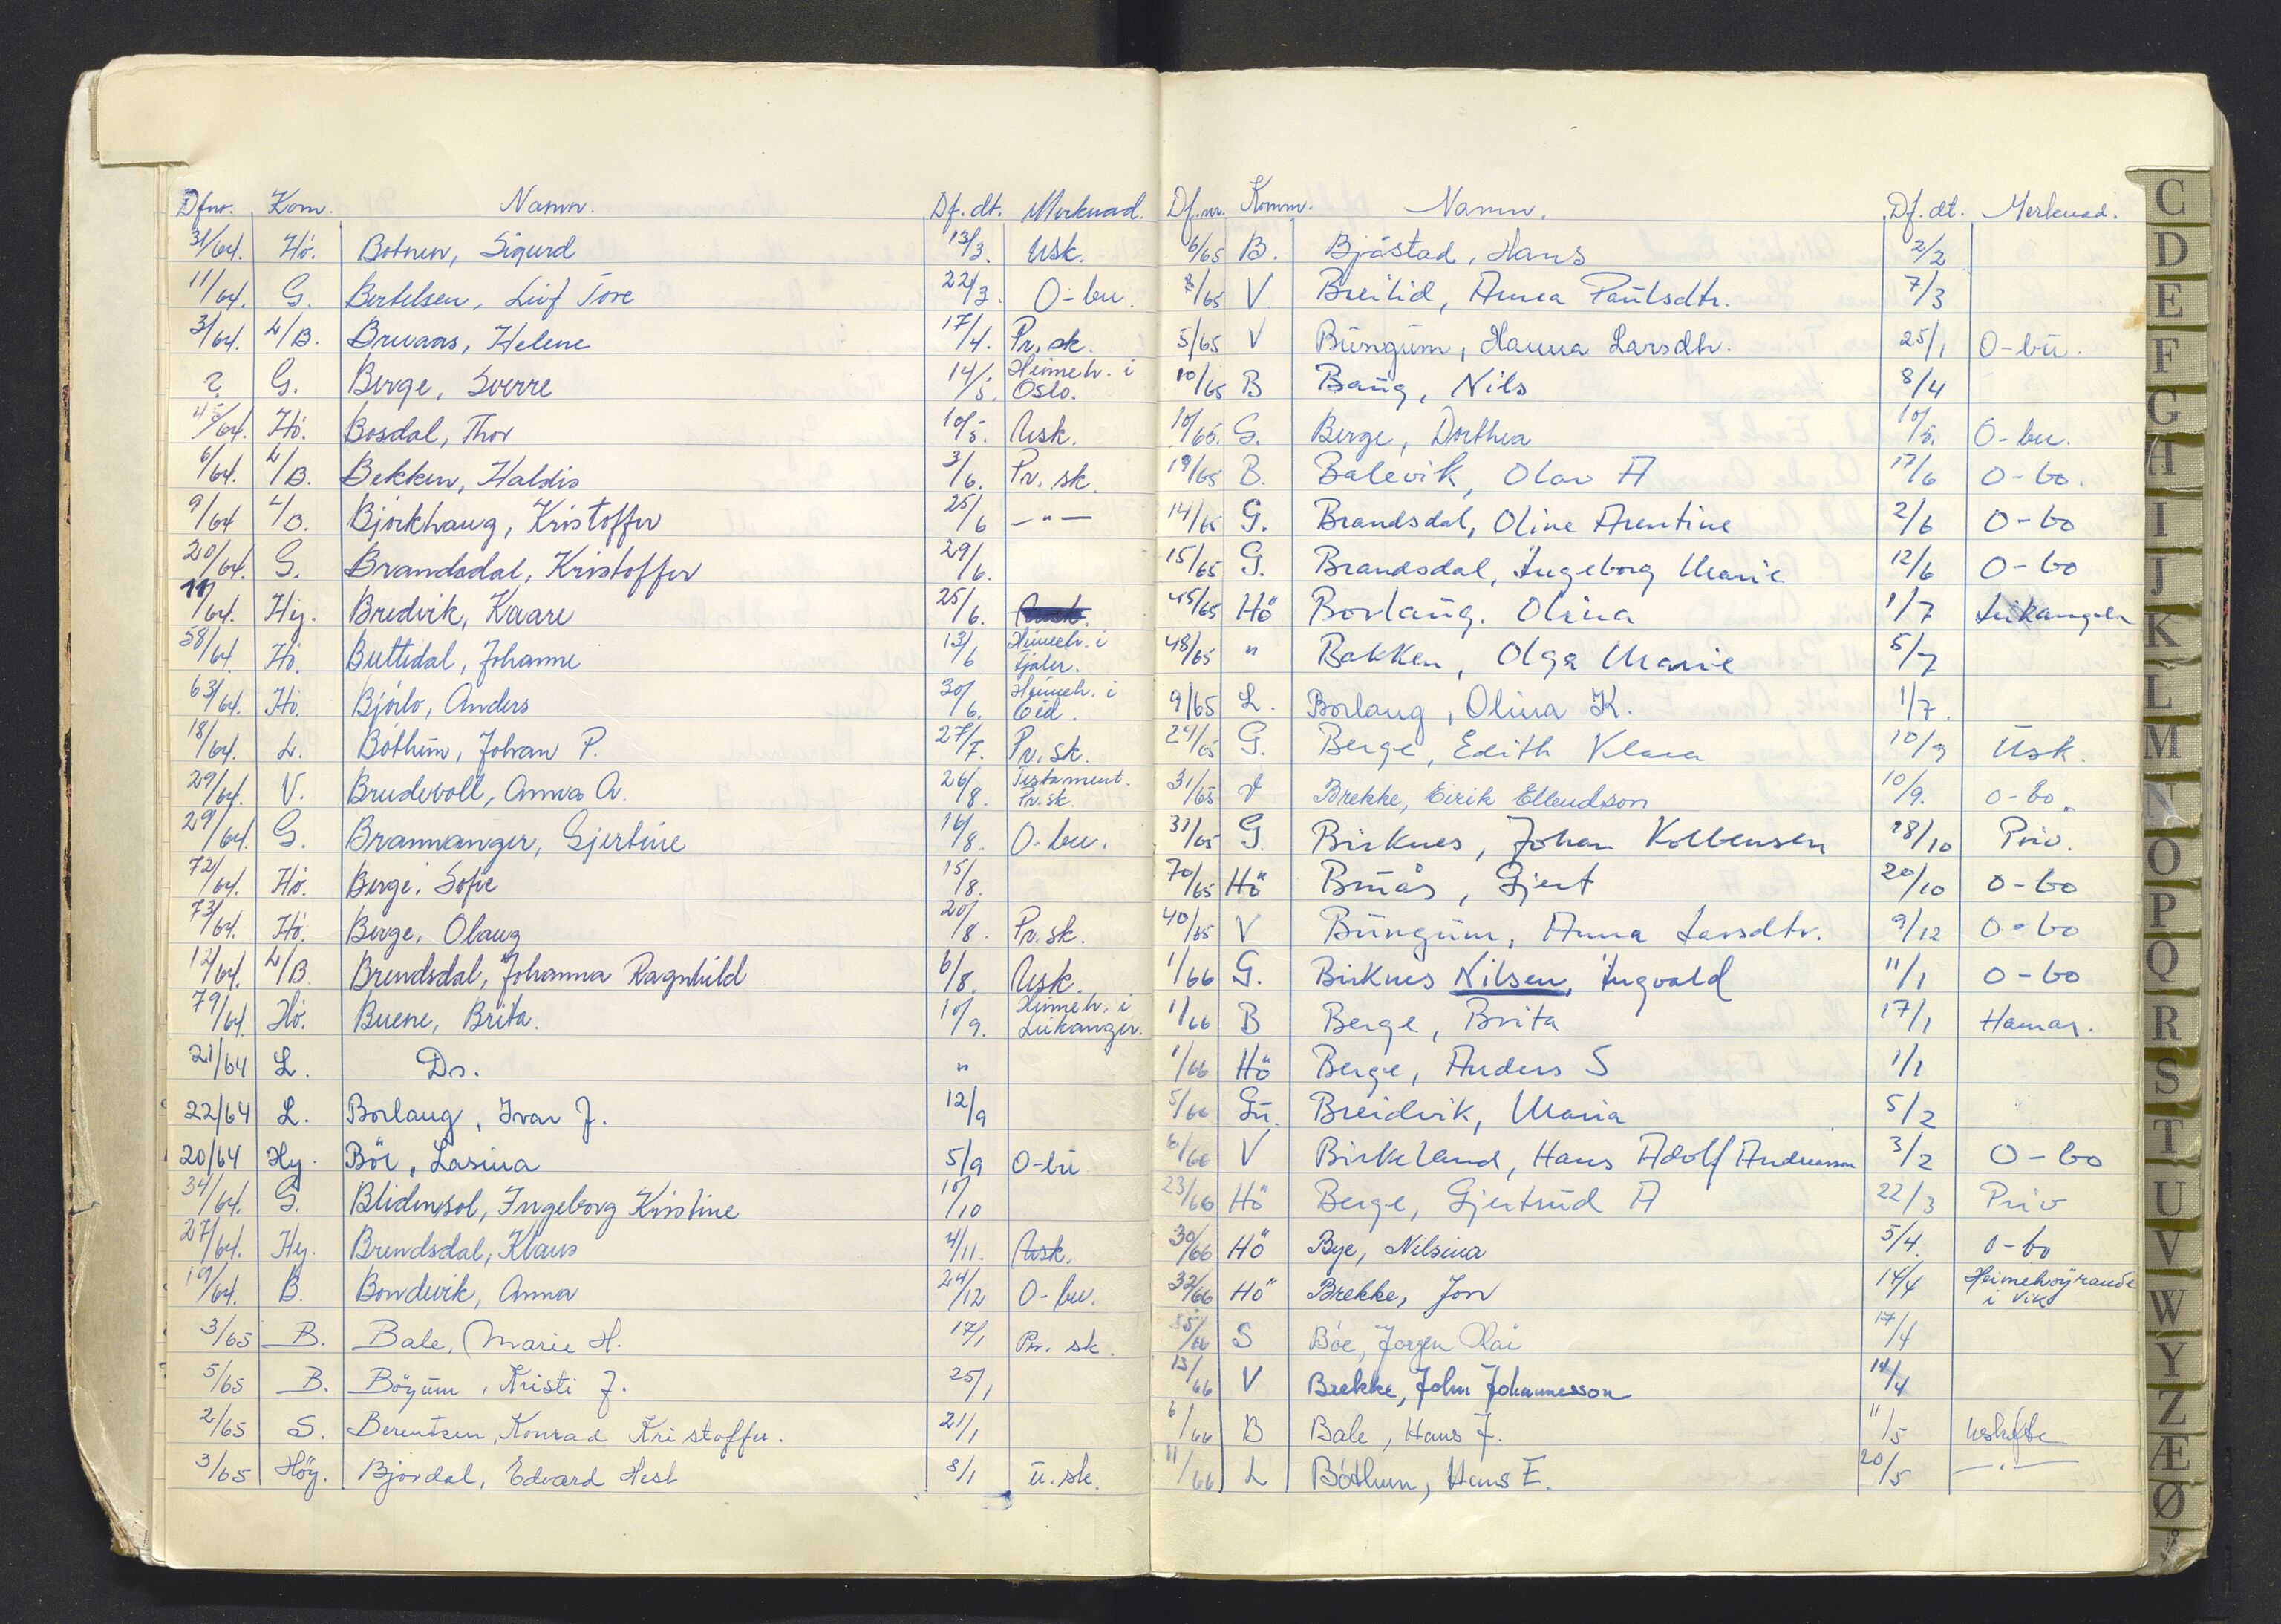 Dfnr. Kom. Namn. Df. dt. Merknad.
31/64. Hö. Botnen, Sigurd 13/3. Usk.
11/64. G. Bertelsen, Leif Tore 22/3. O-bu.
3/64. L/B. Bruaas, Helene 17/4. Pr. sk.
? G. Berge, Sverre 14/5. Heimeh. i Oslo.
45/64. Hö. Bosdal, Thor 10/5. Usk.
6/64. L/B. Bekken, Haldis 3/6. Pr. sk.
9/64 L/B. Björkhaug, Kristoffer 25/6 — " —
20/64. G. Brandsdal, Kristoffer 29/6.
11/64. Hy. Bredvik, Kaare 25/6. Usk.
58/64. Hö. Buttedal, Johanne 13/6 Heimeh. i Fjaler.
63/64. Hö. Bjørlo, Anders 30/6. Heimeh. i Eid.
18/64. L. Böthun, Johan P. 27/7. Pr. sk.
29/64. V. Brudevoll, Anna A. 26/8. Testament. Pr. sk.
29/64. G. Brannanger, Gjertine 16/8. O-bu.
72/64. Hö. Berge, Sofie 15/8.
73/64. Hö. Berge, Olaug 20/8. Pr. sk.
12/64. L/B. Brendsdal, Johanna Ragnhild 6/8. Usk.
79/64. Hö. Buene, Brita. 10/9. Heimeh. i Leikanger.
21/64 L. Do. "
22/64 L. Borlaug, Ivar J. 12/9
20/64 Hy. Bör, Lasina 5/9 O-bu
34/64. G. Blidensol, Ingeborg Kristine 10/10
27/64. Hy. Brendsdal, Klaus 4/11. Usk.
19/64. B. Bondevik, Anna 24/12 O-bu.
3/65 B. Bale, Marie H. 17/1 Pr. sk.
5/65 B. Böyum, Kristi J. 25/1
2/65 S. Berentsen, Konrad Kristoffer. 21/1
3/65 Höy. Bjørdal, Edvard Hest 8/1 u. sk.
Df. nr. Komm. Namn. Df. dt. Merknad.
6/65 B. Bjåstad, Hans 2/2
8/65 V Breilid, Anna Paulsdtr. 7/3
5/65 V Bungum, Hanna Larsdtr. 25/1 O-bu.
10/65 B Baug, Nils 8/4
10/65. G. Berge, Dorthea 10/5. O-bu.
19/65 B. Balevik, Olav A 17/6 O-bo.
14/65 G. Brandsdal, Oline Arentine 2/6 O-bo
15/65 G. Brandsdal, Ingeborg Marie 12/6 O-bo
45/65 Hö Borlaug. Olina 1/7 Leikanger
48/65 " Bakken, Olga Marie 5/7
9/65 L. Borlaug, Olina K. 1/7.
24/65 G. Berge, Edith Klara 10/9 Usk.
31/65 V Brekke, Eirik Ellendson 10/9. O-bo.
31/65 G. Birknes, Johan Kolbensen 28/10 Priv.
70/65 Hö Bruås, Gjert 20/10 O-bo
40/65 V Bungum, Anna Larsdtr. 9/12 O-bo
1/66 G. Birknes Nilsen, Ingvald 11/1 O-bo
1/66 B Berge, Brita 17/1 Hamar.
1/66 Hö Berge, Anders S 1/1
5/66 Gu. Breidvik, Maria 5/2
6/66 V Birkeland, Hans Adolf Andreassen 3/2 O-bo
23/66 Hö Berge, Gjertrud A 22/3 Priv
30/66 Hö Bye, Nilsina 5/4. O-bo
32/66 Hö Brekke, Jon 14/4 Heimehøyrande i Vik
/66 S Böe, Jørgen Olai 17/4
13/66 V Brekke, John Johannesson 14/4
6/66 B Bale, Hans J. 11/5 Uskifte
11/66 L Böthun, Hans E. 20/5 — " —
C
D
E
F
G
H
I
J
K
L
M
N
O
P
Q
R
S
T
U
V
W
Y
Z
Æ
Ø
Å